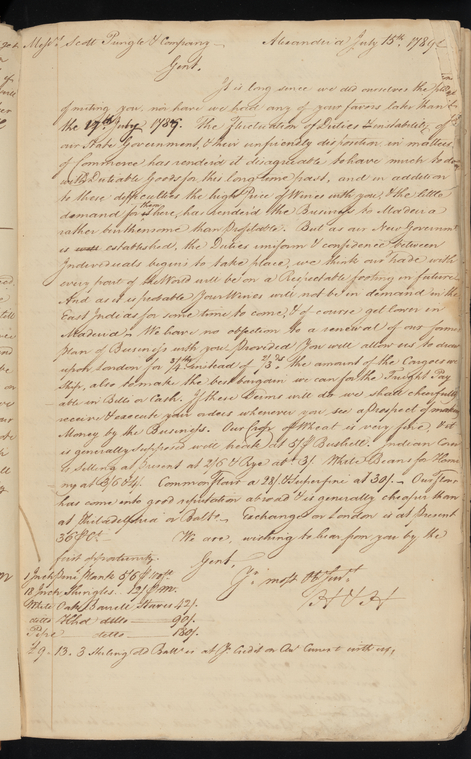 Mess.rs Scott Pringle & Company — Alexandria July 15th. 1789
Gent.
It is long since we did ourselves the pleasure
of writing you, nor have we had any of your favors later than
the 19th July 1785. The Fluctuation of Duties & instability of
our State Government, & their unfriendly disposition in matters
of Commerce has rendered it disagreeable to have much to do
with Dutiable Goods for this long time past, and in addition
to these difficulties the high Price of Wines with you, & the little
demand for them here, has render'd the Business to Madeira
rather burthensome than Profitable. But as our New Government
is established, the Duties uniform & confidence between
Individuals begins to take place, we think our trade with
every part of the World will be on a Respectable footing in future
And as it is probable Your Wines will not be in demand in the
East Indias for some time to come, & of course get lower in
Madeira; We have no objection to a renewal of our former
Plan of Business with you, Provided You will allow us to draw
upon London for 3/4ths instead of 2/3ds the amount of the Cargoes
Ship, also to make the best bargain we can for the Freight Pay
able in Bills or Cash. If these Terms will do we shall chearfully
receive & execute your orders whenever you see a Prospect of making
Money by the Business. Our Crop of Wheat is very fine, & it
is generally supposed will break at 5/ P Bushell. Indian Corn
is selling at Present at 2/6 & Rye at 3/. White Beans for Homi
ny at 3/6 @ 4/. Common Flour @ 28/ & Superfine at 30/. — Our Flour
has come into good reputation abroad & is generally cheaper than
at Philadelphia or Balto. — Exchange on London is at Present
36 P Ct. — We are, wishing to hear from you by the
first opportunity. Gent.
1 Inch Pine Plank 5/6 P
18 Inch Shingles 12/ P m. Yr. most Ob. Servts.
White Oak Barrell Staves 42/. H & H
ditto Hhd ditto — 90/.
Pipe ditto — 180/.
£9 . 13 . 3 Sterling old Balle. is at Yr. Credit on Acct. Currt. with us,